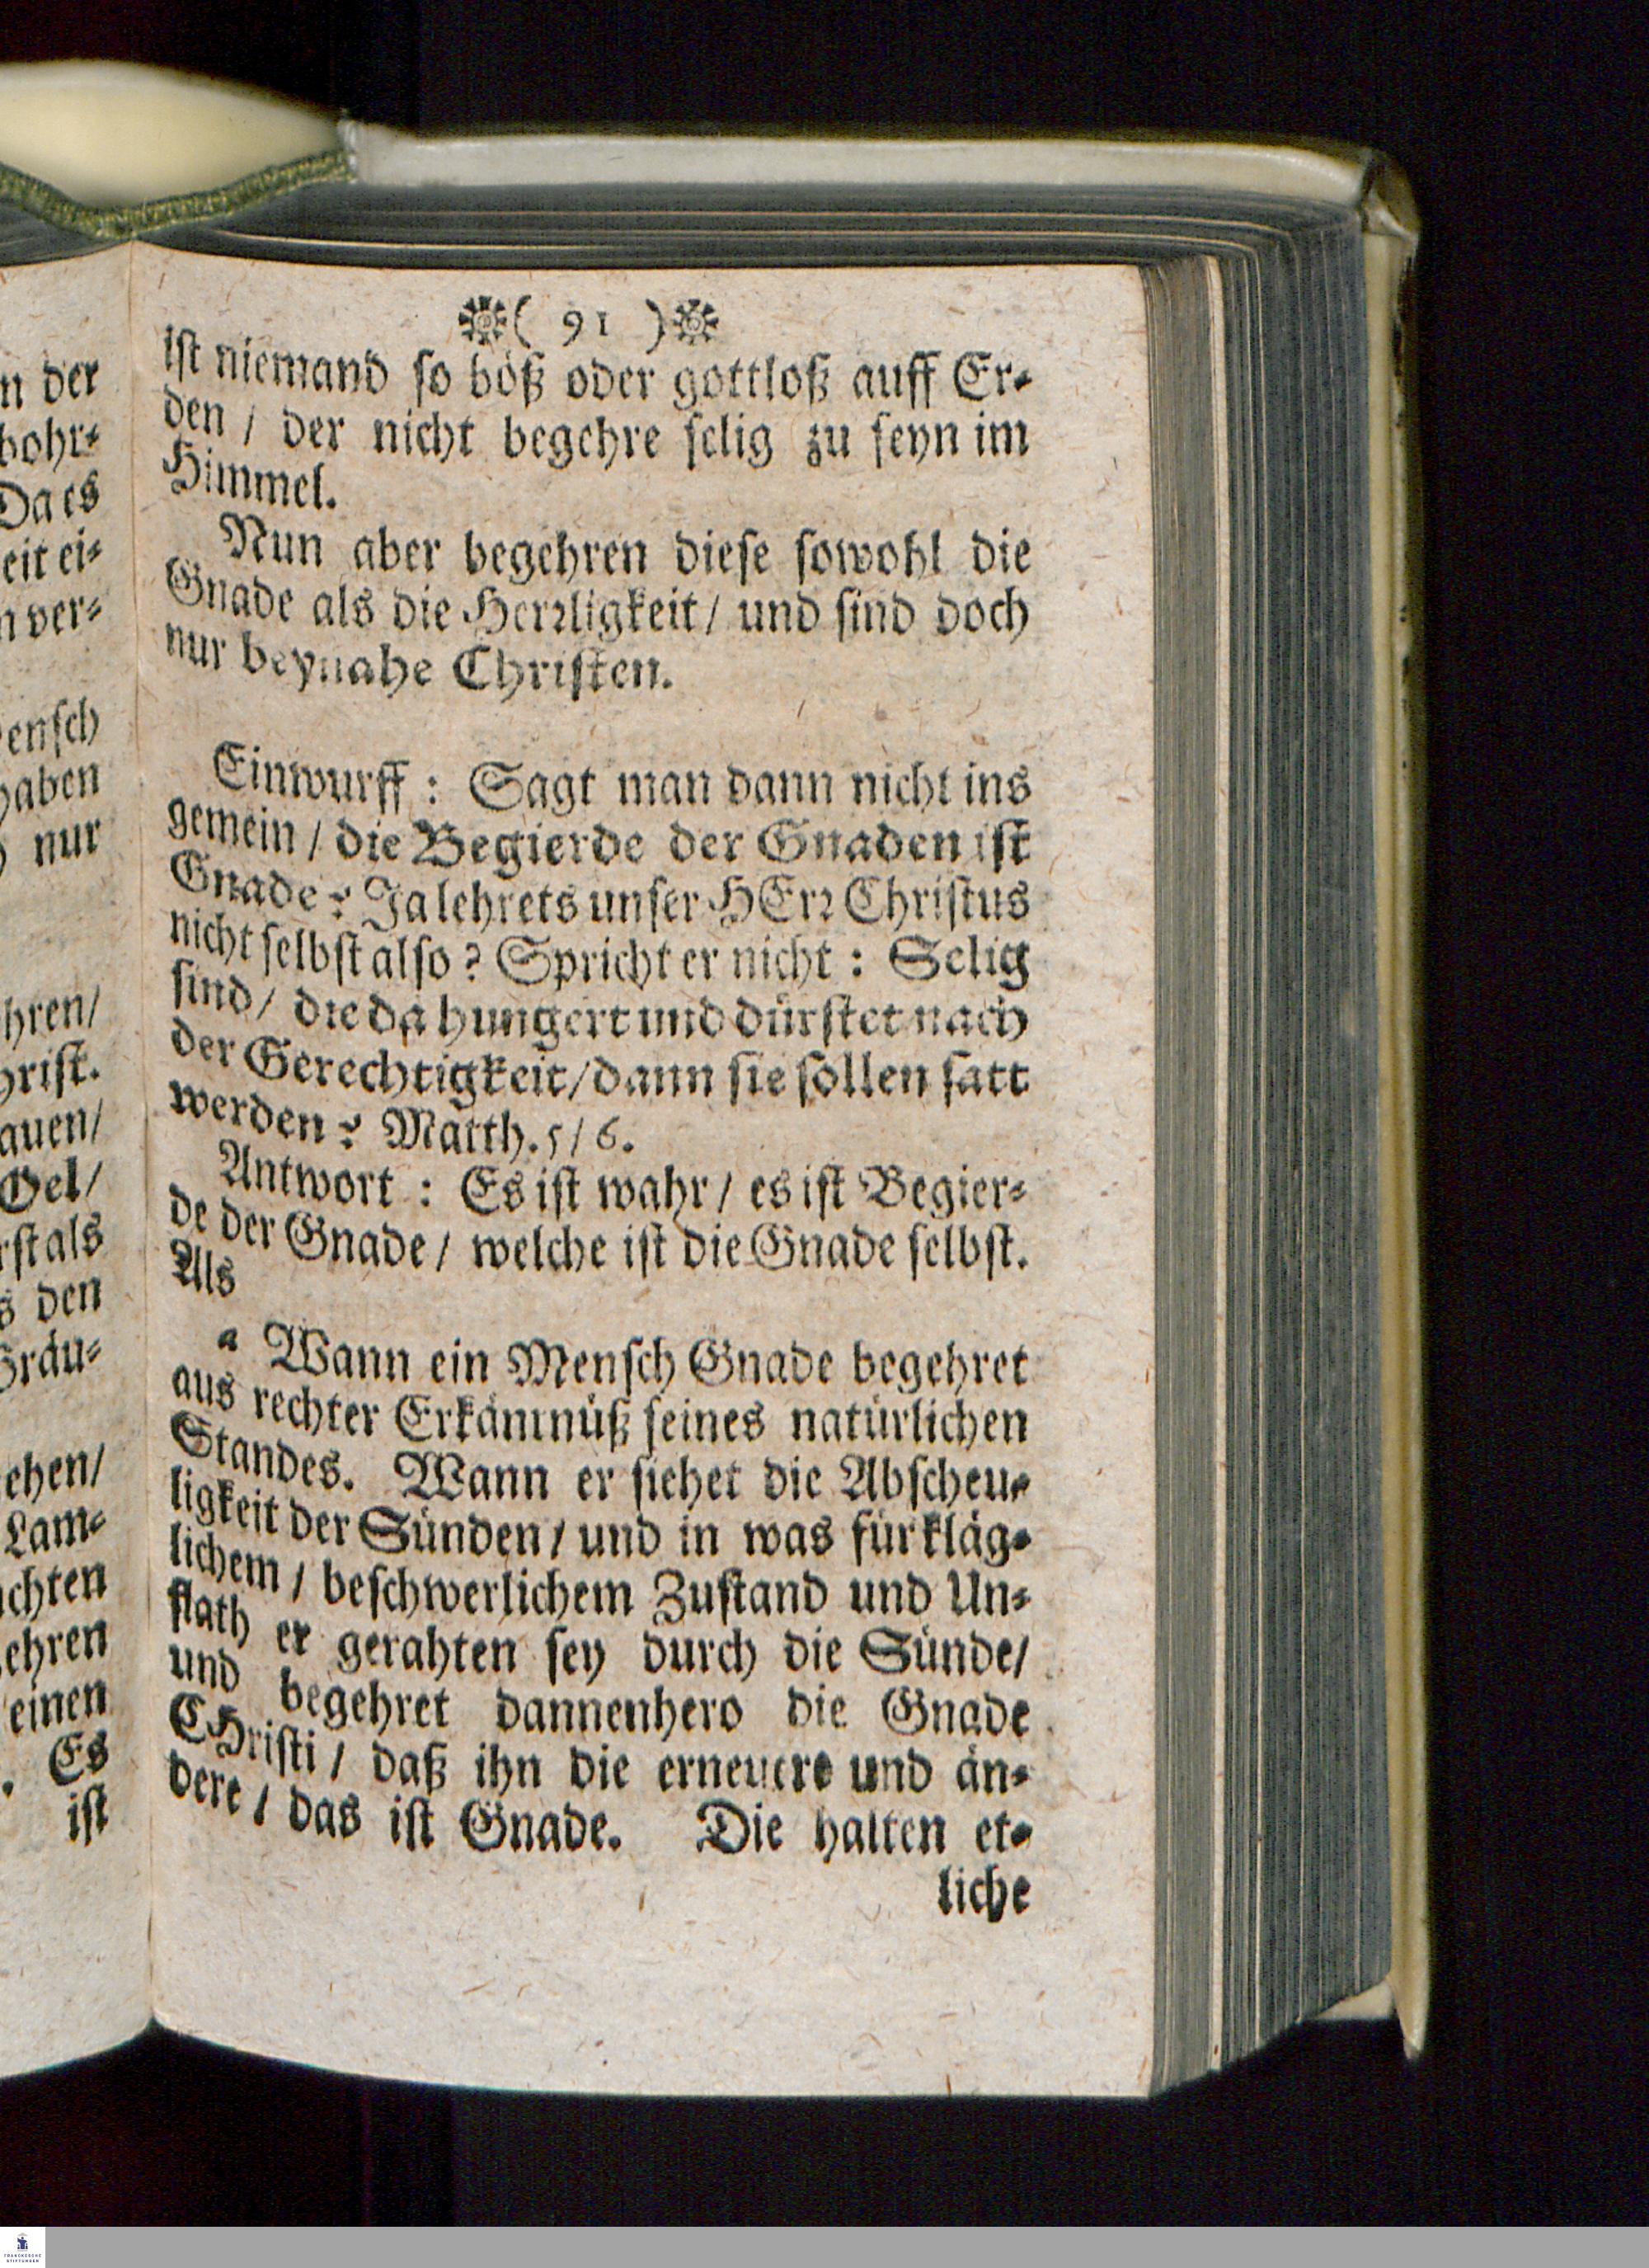 n der
bohr⸗
Da es
eit ei⸗
n ver⸗
ensch
haben
nur
hren/
hrist.
auen/
Oel/
rst als
s den
Gräu⸗
ehen/
Lam⸗
chten
ehren
einen
. Es
ist
( 91 )
ist niemand so böß oder gottloß auff Er⸗
den / der nicht begehre selig zu seyn im
Himmel.
Nun aber begehren diese sowohl die
Gnade als die Herrligkeit / und sind doch
nur beynahe Christen.
Einwurff : Sagt man dann nicht ins
gemein / die Begierde der Gnaden ist
Gnade? Ja lehrets unser HErr Christus
nicht selbst also? Spricht er nicht : Selig
sind / die da hungert und dürstet nach
der Gerechtigkeit / dann sie sollen satt
werden? Matth. 5 / 6.
Antwort : Es ist wahr / es ist Begier⸗
de der Gnade / welche ist die Gnade selbst.
Als
a Wann ein Mensch Gnade begehret
aus rechter Erkäntnüß seines natürlichen
Standes. Wann er siehet die Abscheu⸗
ligkeit der Sünden / und in was für kläg⸗
lichem / beschwerlichem Zustand und Un⸗
flath er gerahten sey durch die Sünde /
und begehret dannenhero die Gnade
CHristi / daß ihn die erneuere und än⸗
dere / das ist Gnade. Die halten et⸗
liche
FRANCKESCHE
STIFTUNGEN